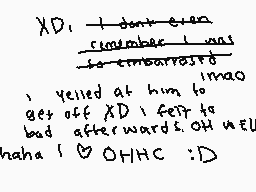 XD, I dont even
remember I was
so embarrased
lmao
i yelled at him to
get off XD i felt so
bad afterwards. OH WELL
haha I ♡ OHHC :D